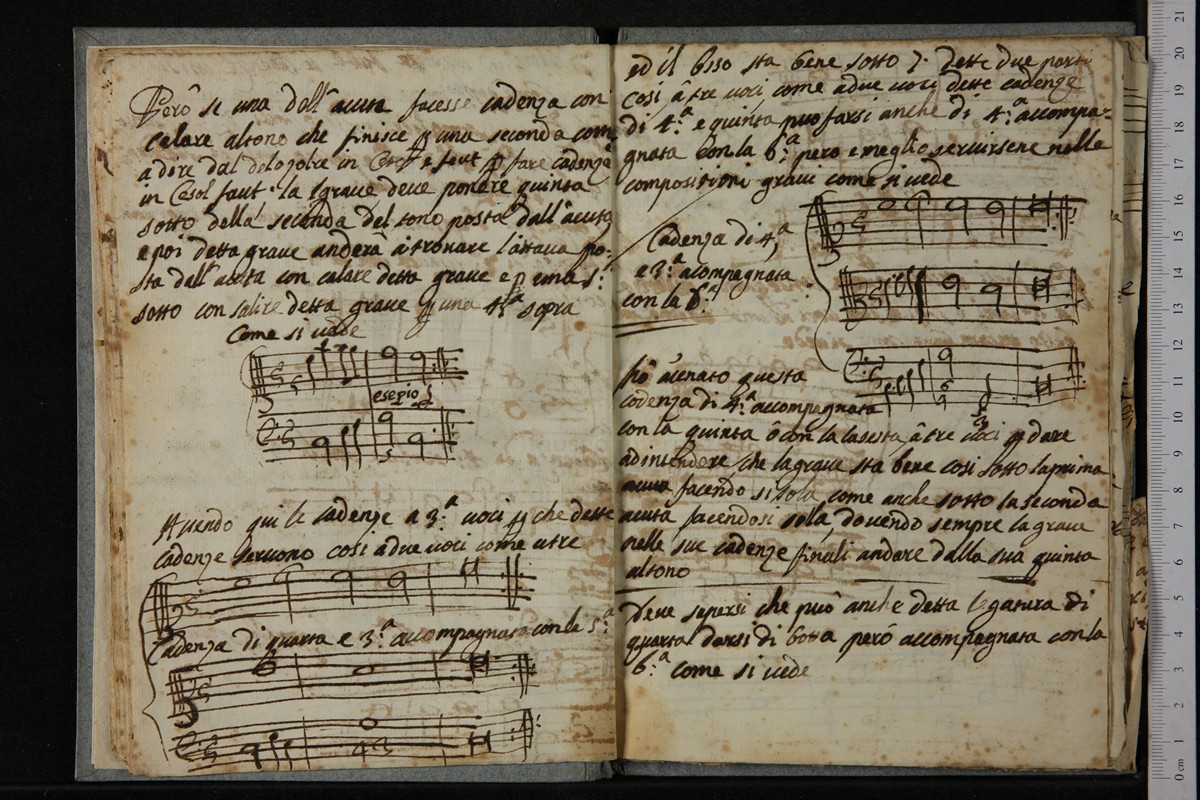 Però se una dell'acuta facesse cadenza con
calare altono che finisce una seconda come
adire dal delasolre in Cesol faut fare cadenza
in Cesol faut e la grave deve ponere quinta
sotto della seconda del tono posta dall'acuta
e poi detta grave anderà à trovare l'ottava po:
sta dall'acuta con calare detta grave e una 5.ª
sotto con salire detta grave una 4.ª sopra
Come si vede
esepio
Avendo qui le cadenze a 3.ª voci che dette
cadenze servono così adue voci come atre
Cadenza di quarta e 3.ª accompagnata con la 5.ª
43
ed il bsso sta bene sotto dette due parti
così à tre voci come adue voci dette cadenze
di 4.ª e quinta può farsi anche di 4.ª accompa-
gnata con la 6.ª però e meglio servirsene nelle
compositioni gravi come si vede
Cadenza di 4.ª
e 3.ª acompagnata
con la 6.ª
hò acenato questa
cadenza di 4.ª accompagnata
con la quinta ò con la sesta, à tre voci dare
adintendere che la grave sta bene così sotto la prima
acuta facendosi sola, come anche sotto la seconda
acuta facendosi sola, dovendo sempre la grave
nelle sue cadenze finali andare dalla sua quinta
altono
Deve sapersi che può anche detta legatura di
quarta darsi di botta però accompagnata con la
6.ª come si vede